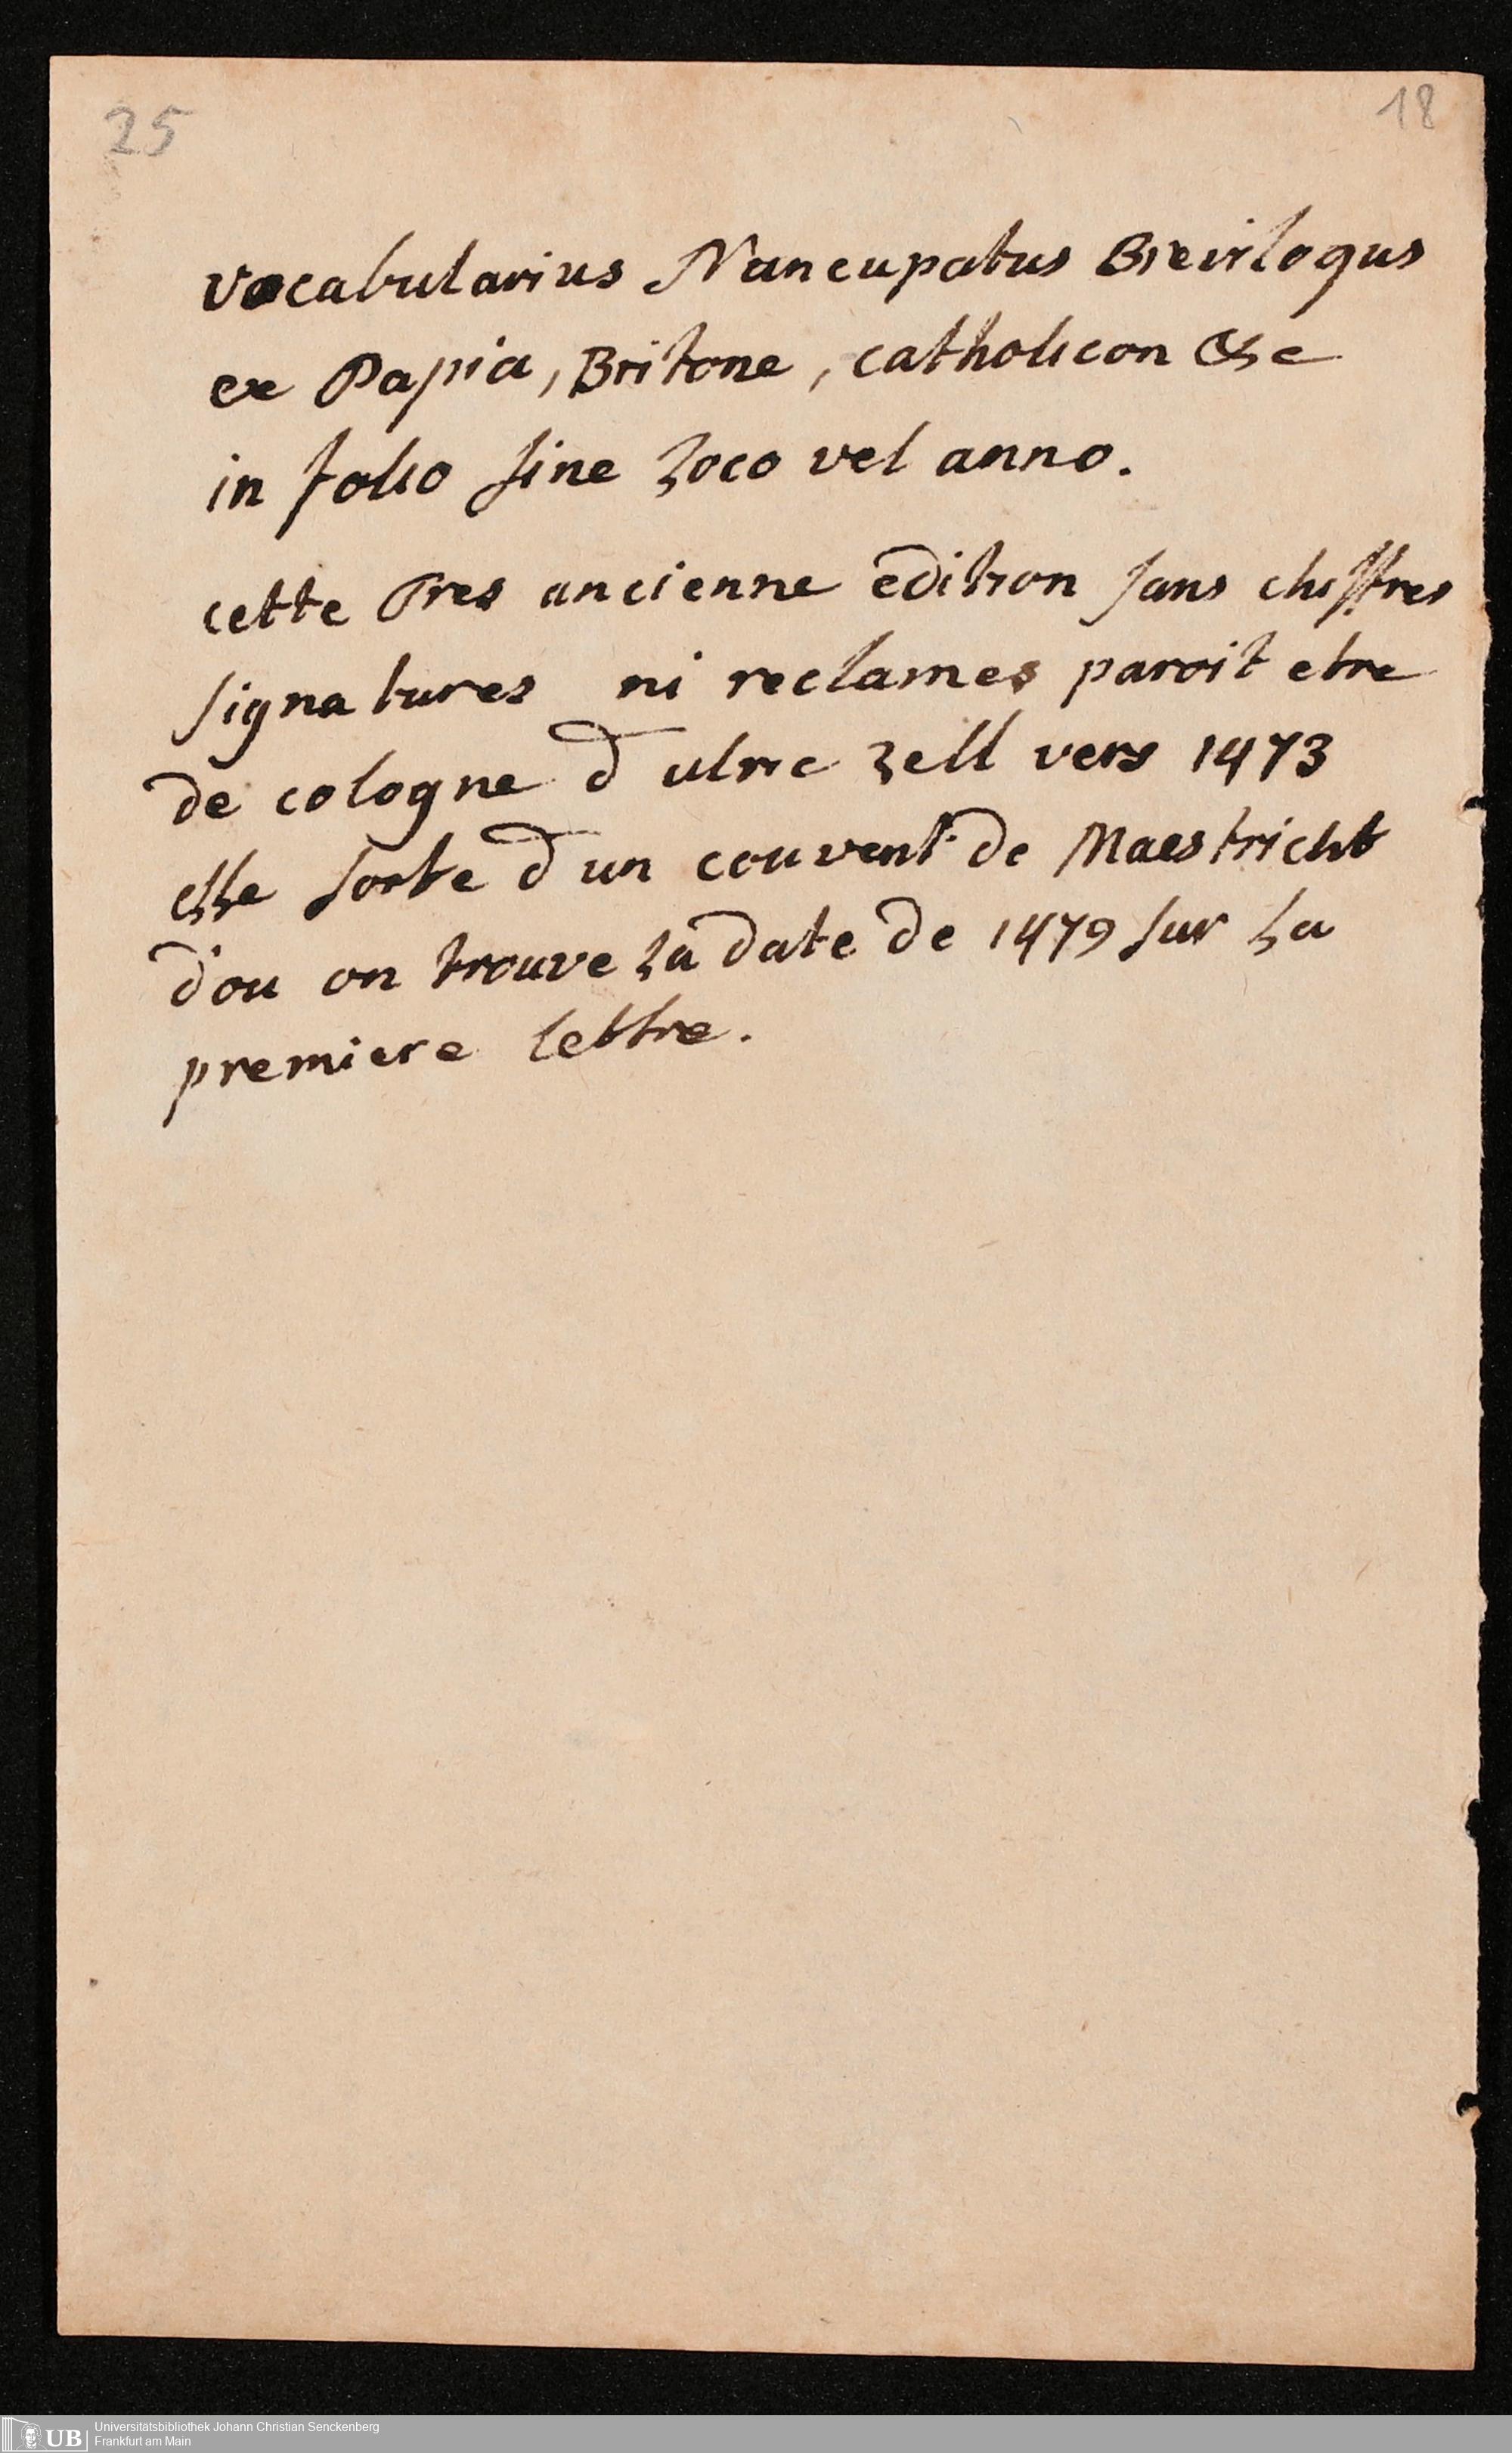 25
18
vocabularius Nuncupatus Breviloqus
ex Papia, Britone, catholicon &c
in folio sine loco vel anno.
cette tres ancienne edition sans chiffres
signatures ni reclames paroit etre
de cologne d ulric zell vers 1473
elle sorte d un couvent de Maestricht
d'ou on trouve la date de 1479 sur la
premiere lettre.
UB
Universitätsbibliothek Johann Christian Senckenberg
Frankfurt am Main